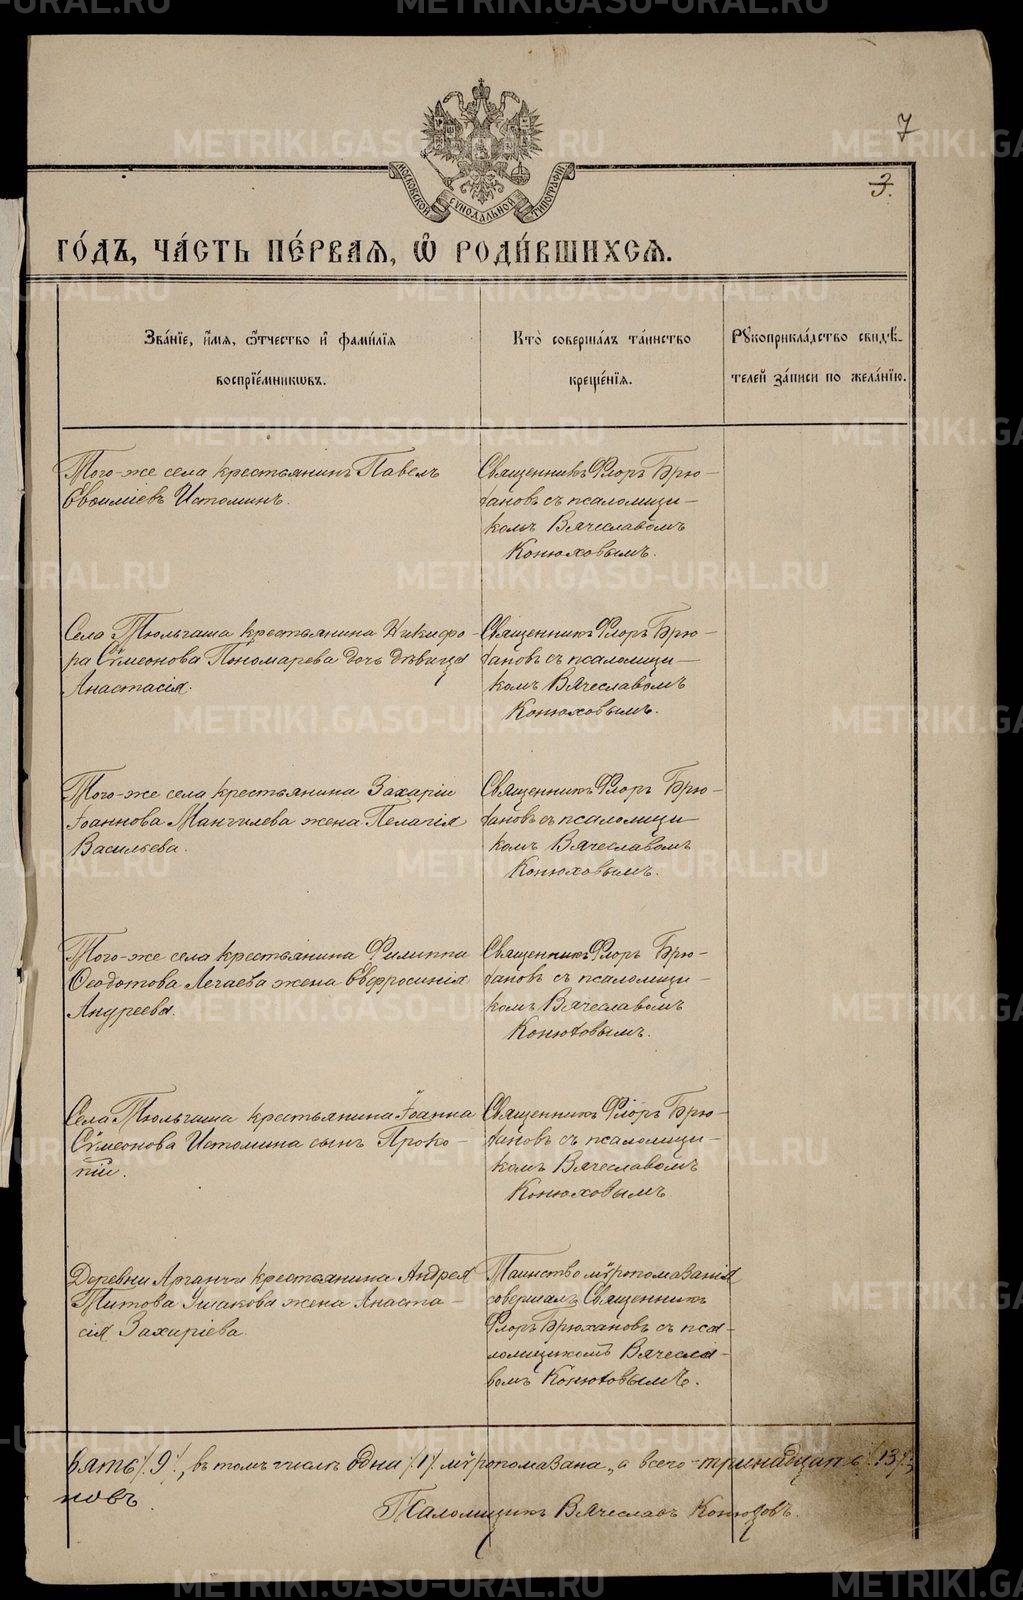 7
3.
МОСКОВСКОЙ СѴНОДАЛЬНОЙ ТИПОГРАФІИ
ГО́ДЪ, ЧА́СТЬ ПЕ́РВАѦ, Ѽ РОДИ́ВШИХСѦ.
Зва́нїе, и́мѧ, ѻ҆́тчество и҆ фами́лїѧ
воспрїе́мникѡвъ.
Кто̀ соверша́лъ та́инство
креще́нїѧ.
Рꙋкоприкла́дство свидѣ́-
телей за́писи по жела́нїю.
Того-же села крестьянинъ Павелъ
Евѳиміевъ Истоминъ.
Священникъ Флоръ Брю-
хановъ съ псаломщи-
комъ Вячеславомъ
Конюховымъ.
Села Тюльгаша крестьянина Никифо-
ра Сѵмеонова Пономарева дочь дѣвица
Анастасія.
Священникъ Флоръ Брю-
хановъ съ псаломщи-
комъ Вячеславомъ
Конюховымъ.
Того-же села крестьянина Захаріи
Іоаннова Мангилева жена Пелагія
Васильева.
Священникъ Флоръ Брю-
хановъ съ псаломщи-
комъ Вячеславомъ
Конюховымъ.
Того-же села крестьянина Филиппа
Ѳеодотова жена Евфросинія
Андреева.
Священникъ Флоръ Брю-
хановъ съ псаломщи-
комъ Вячеславомъ
Конюховымъ.
Села Тюльгаша крестьянина Іоанна
Сѵмеонова Истомина сынъ Проко-
пій.
Священникъ Флоръ Брю-
хановъ съ псаломщи-
комъ Вячеславомъ
Конюховымъ
Деревни крестьянина Андрея
Титова Ушакова жена Анаста-
сія Захаріева.
Таинство мѵропомазанія
совершалъ Священникъ
Флоръ Брюхановъ съ пса-
ломщикомъ Вячесла-
вомъ Конюховымъ.
вять /9/, въ томъ числѣ одна /1/ мѵропомазана, а всего тринадцать /13/,
повъ.
Псаломщикъ Вячеславъ Конюховъ.
METRIKI.GASO-URAL.RU